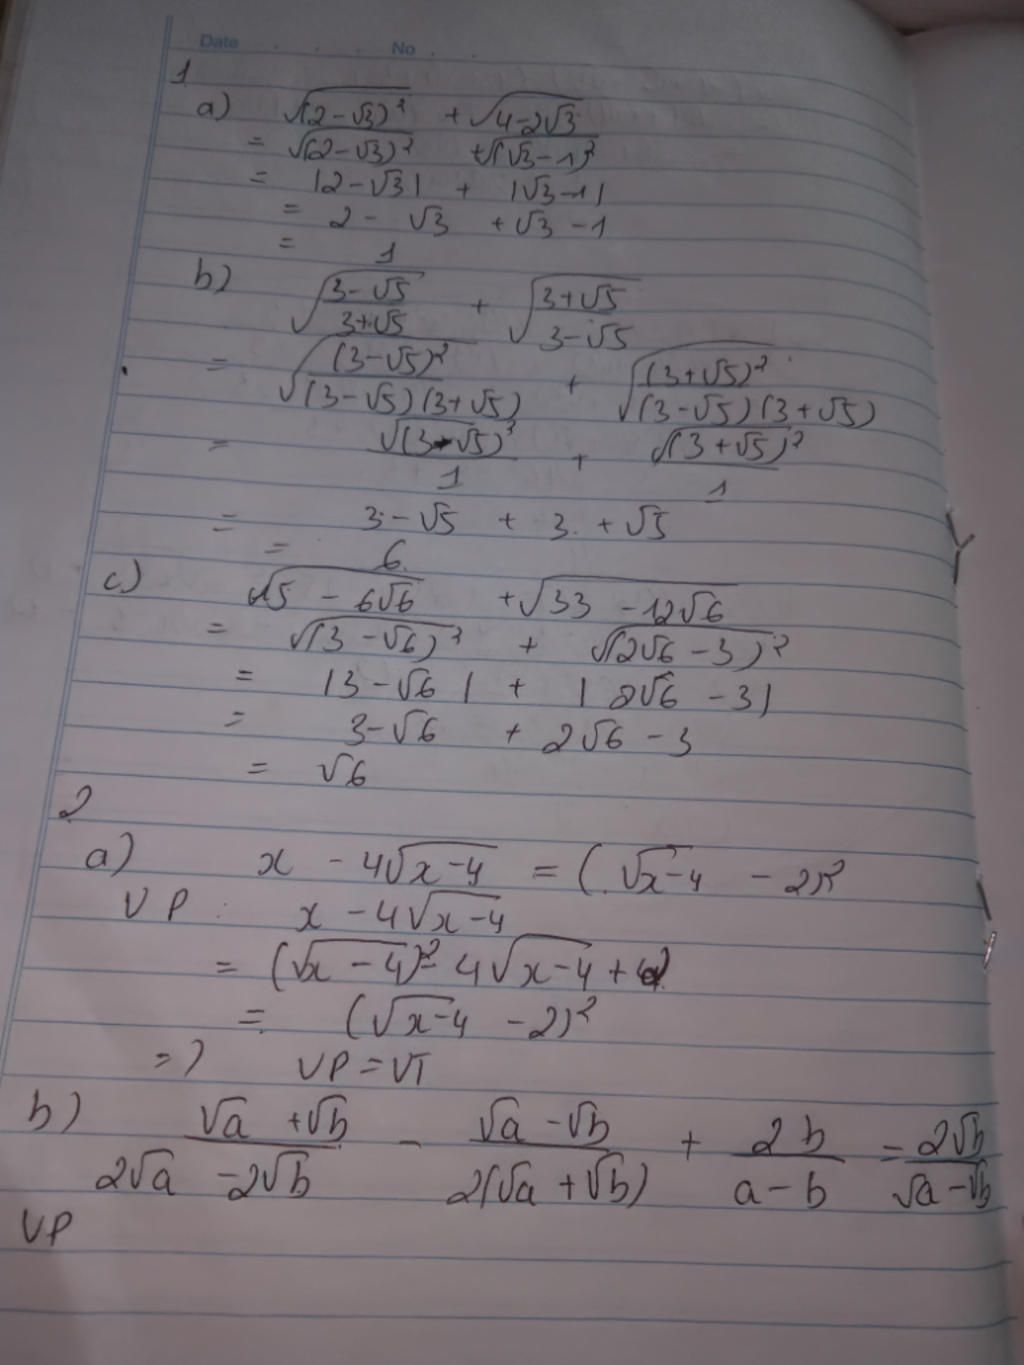 Date . . . No . .
1
a) √(2-√3)² + √4-2√3
= √(2-√3)² + √(√3-1)²
= |2-√3| + |√3-1|
= 2 - √3 + √3 - 1
= 1
b) √(3-√5)/(3+√5) + √(3+√5)/(3-√5)
= √(3-√5)²/(3-√5)(3+√5) + √(3+√5)²/(3-√5)(3+√5)
= √(3-√5)²/1 + √(3+√5)²/1
= 3-√5 + 3 + √5
= 6
c) √15 - 6√6 + √33 - 12√6
= √(3-√6)² + √(2√6-3)²
= |3-√6| + |2√6-3|
= 3-√6 + 2√6-3
= √6
2
a) x - 4√x-4 = (√x-4 - 2)²
VP : x - 4√x-4
= (√x-4)² - 4√x-4 + 4
= (√x-4 - 2)²
=> VP = VT
b) (√a + √b)/(2√a - 2√b) - (√a - √b)/2(√a + √b) + 2b/(a-b) = 2√b/(√a-√b)
VP